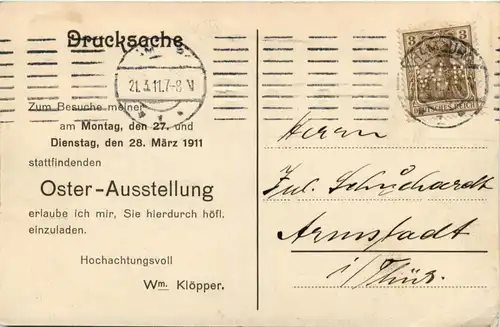 Drucksache
21.3.11.7-8 V
Zum Besuche meiner
am Montag, den 27. und
Dienstag, den 28. März 1911
stattfindenden
Oster-Ausstellung
erlaube ich mir, Sie hierdurch höfl.
einzuladen.
Hochachtungsvoll
Wm. Klöpper.
3 3
DEUTSCHES REICH
Herrn
Jul. Schuchardt
Arnstadt
i/Thür.